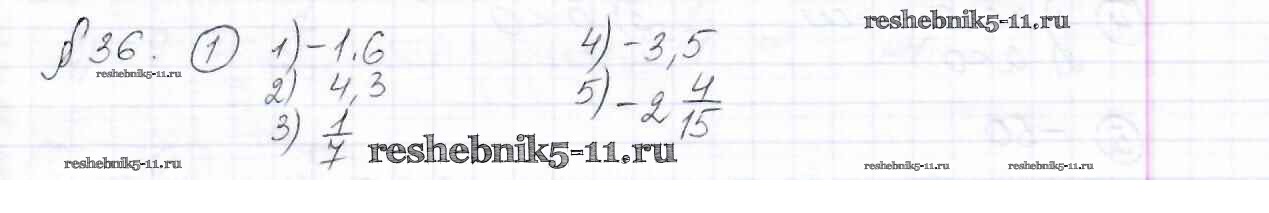 § 36. 1 1) -1.6 4) -3,5
2) 4,3 5) -2 4/15
3) 1/7
reshebnik5-11.ru
reshebnik5-11.ru
reshebnik5-11.ru
reshebnik5-11.ru
reshebnik5-11.ru
reshebnik5-11.ru